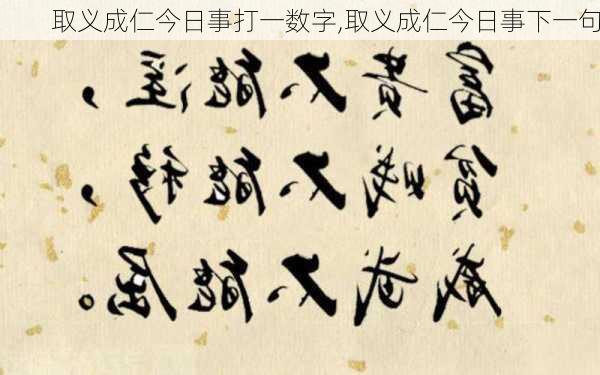 取义成仁今日事打一数字,取义成仁今日事下一句
富贵不能淫，
贫贱不能移，
威武不能屈。